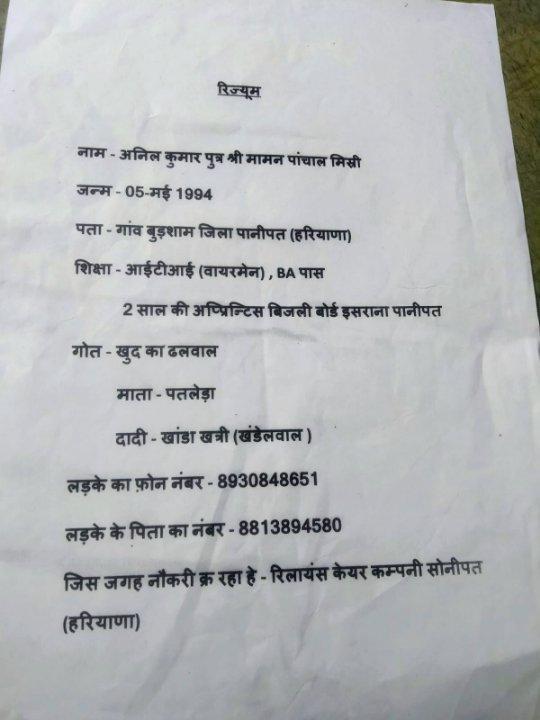 रिज्यूम
नाम - अनिल कुमार पुत्र श्री मामन पांचाल मिस्री
जन्म - 05-मई 1994
पता - गांव बुड़शाम जिला पानीपत (हरियाणा)
शिक्षा - आईटीआई (वायरमेन) , BA पास
2 साल की अप्प्रिन्टिस बिजली बोर्ड इसराना पानीपत
गोत - खुद का ढलवाल
माता - पतलेड़ा
दादी - खांडा खत्री (खंडेलवाल )
लड़के का फ़ोन नंबर - 8930848651
लड़के के पिता का नंबर - 8813894580
जिस जगह नौकरी क्र रहा हे - रिलायंस केयर कम्पनी सोनीपत
(हरियाणा)